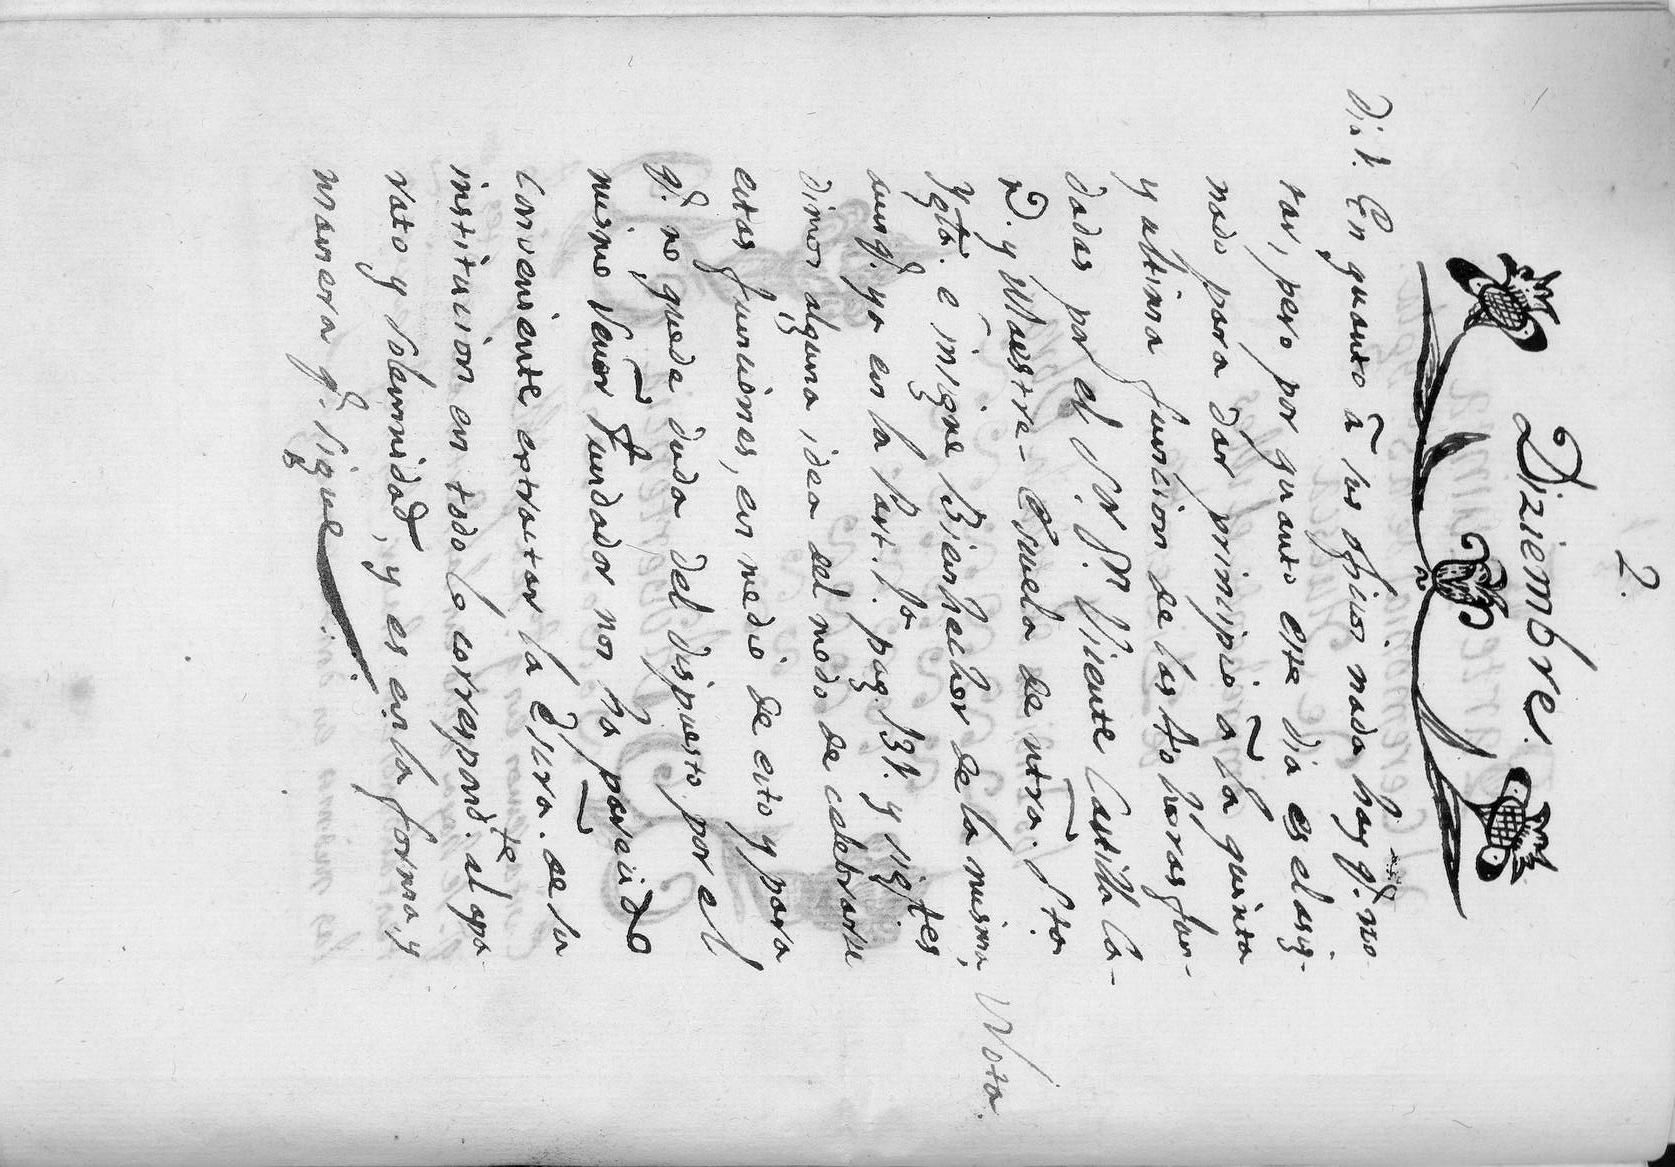 2.
Diziembre.
Dia 1. En quanto â los oficios nada hay q. no-
tar, pero por quanto este dia es el asig-
nado para dar principio â la quinta
y ultima funcion de las 40 horas fun-
dadas por el Sr. Dn. Vicente Castilla Ca-
n. y Maestre-Escuela de ntra. Sta.
Ygla. e insigne Bienhechor de la misma, Nota.
aunq. ya en la Part. 1. pag. 131. y sigtes.
dimos alguna idea del modo de celebrarse
estas funciones, en medio de esto y para
q. no quede duda del dispuesto por el
mismo Señor Fundador nos ha parecido
conveniente extractar la Escra. de su
institucion en todo lo correspondte. al apa-
rato y solemnidad, y es en la forma, y
manera q. sigue